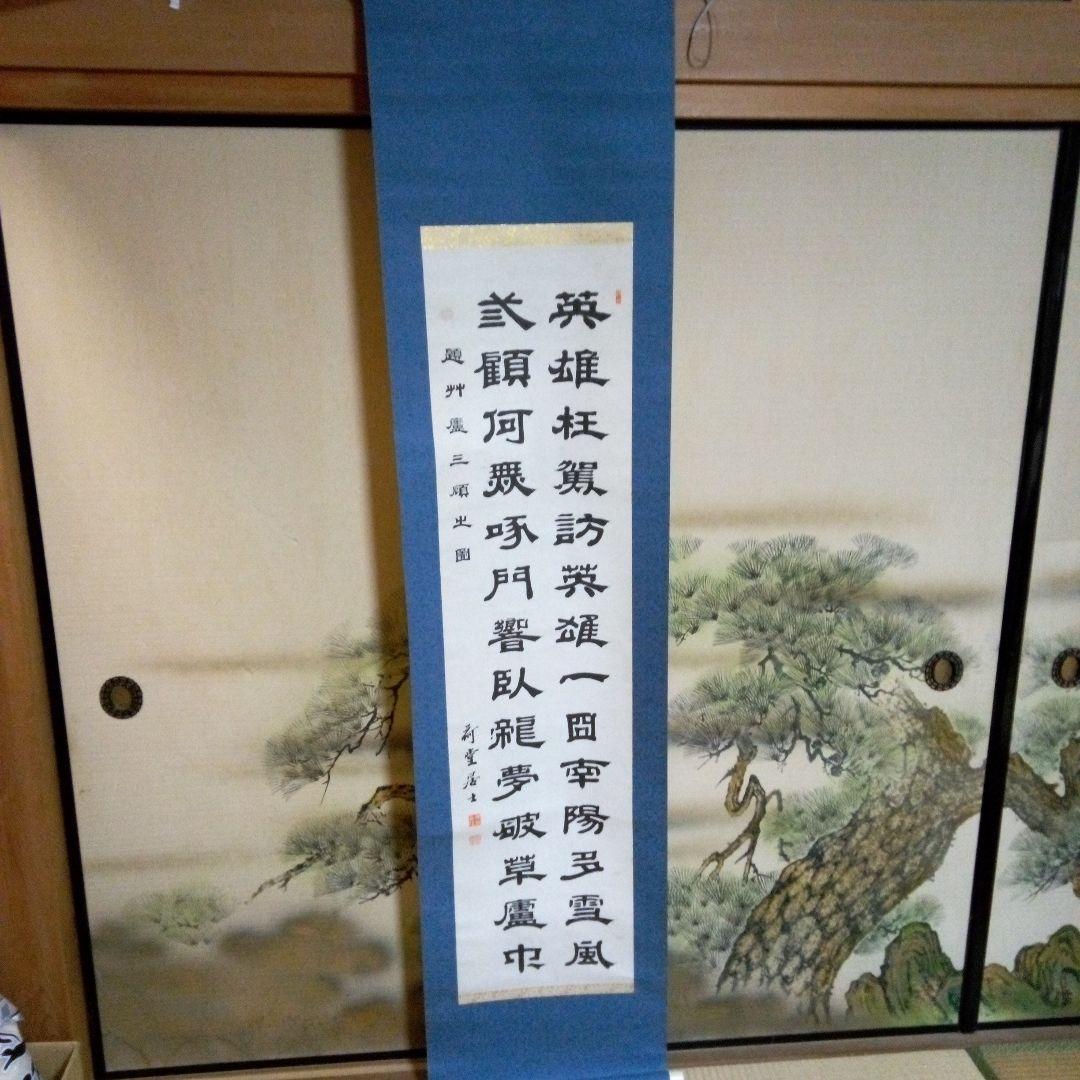 英雄枉駕訪英雄一囘南陽多雪風
弎顧何無啄門響臥龍夢破草廬中
題艸廬三顧之圖
堂居士